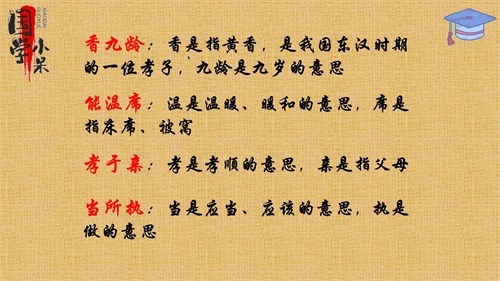 国学
小米
香九龄：香是指黄香，是我国东汉时期
的一位孝子，九龄是九岁的意思
能温席：温是温暖、暖和的意思，席是
指床席、被窝
孝于亲：孝是孝顺的意思，亲是指父母
当所执：当是应当、应该的意思，执是
做的意思